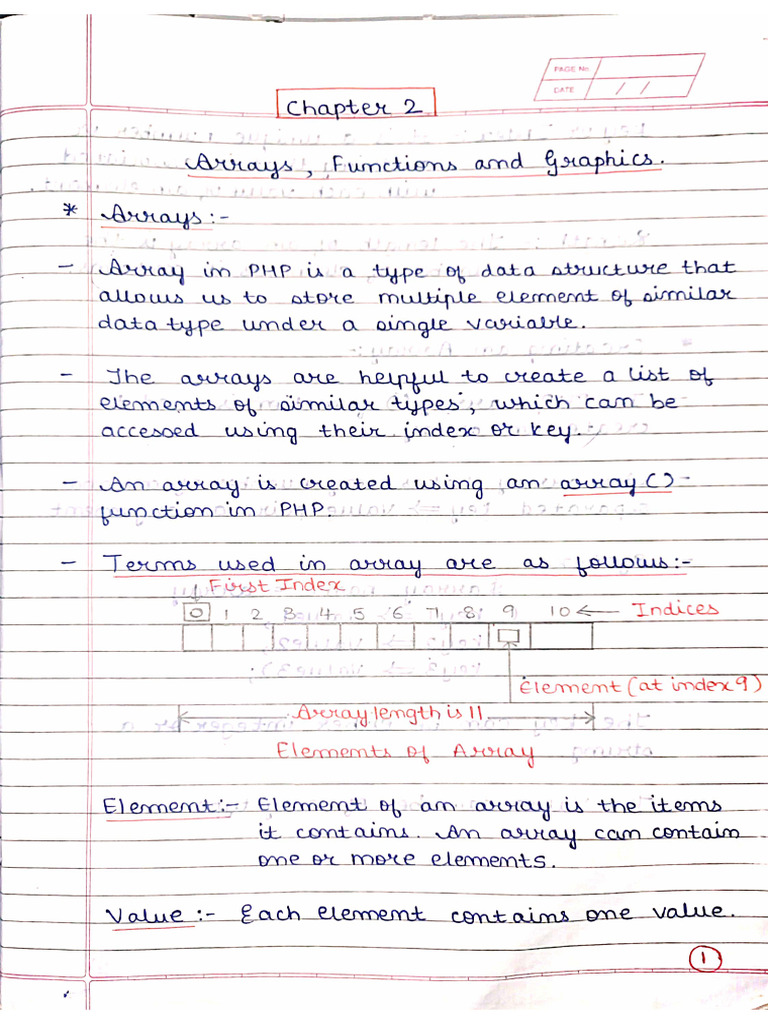 PAGE No.
DATE / /
Chapter 2
Arrays, Functions and Graphics.
* Arrays:-
- Array in PHP is a type of data structure that
allows us to store multiple element of similar
data type under a single variable.
- The arrays are helpful to create a list of
elements of similar types, which can be
accessed using their index or key.
- An array is created using an array()-
function in PHP.
- Terms used in array are as follows:-
First Index
0 1 2 3 4 5 6 7 8 9 10 ← Indices
Element (at index 9)
Array length is 11
Elements of Array
Element:- Element of an array is the items
it contains. An array can contain
one or more elements.
Value:- Each element contains one value.
1